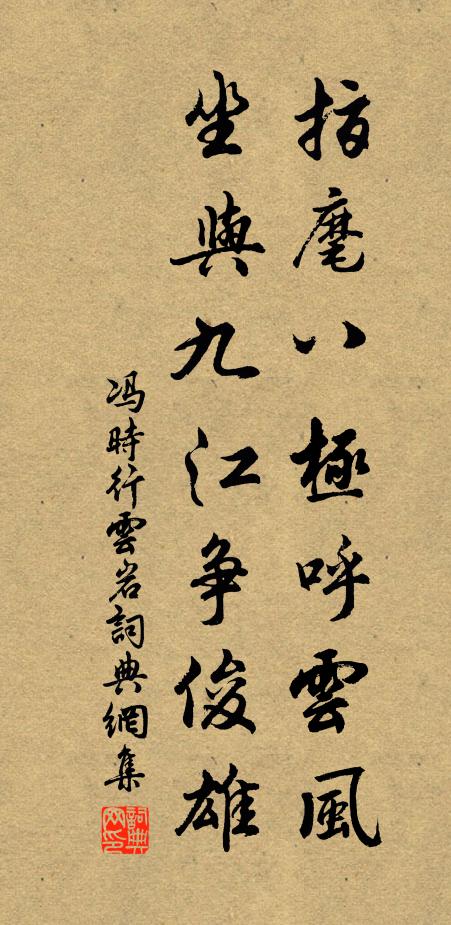 指麾八極呼雲風
坐與九江争俊雄
冯時行雲岩詞典網集
詞典网印